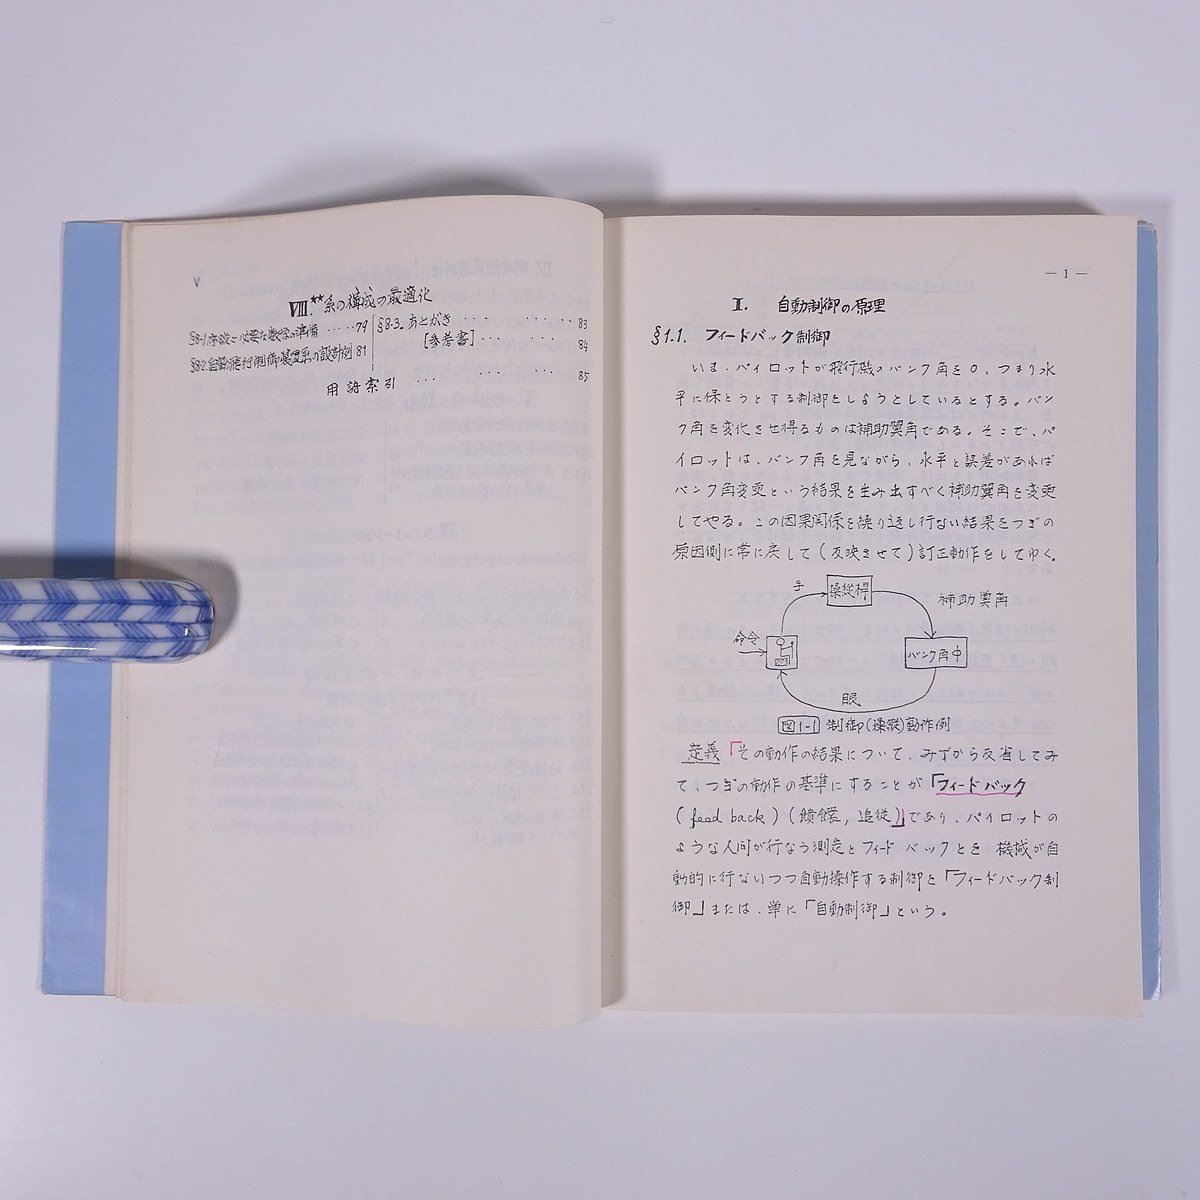 V
VIII.** 系の構成の最適化
§8-1. 序説と必要な数学の準備 ····· 79
§8-2. 自動飛行制御装置系の設計例 81
§8-3. あとがき ···· ······ 83
[参考書] ··· ····· ·· 84
用語索引 ··· ····· ·· 85
— 1 —
I. 自動制御の原理
§1.1. フィードバック制御
いま、パイロットが飛行機のバンク角を0、つまり水
平に保とうとする制御をしようとしているとする。バン
ク角を変化させ得るものは補助翼角である。そこで、パ
イロットは、バンク角を見ながら、水平と誤差があれば
バンク角変更という結果を生み出すべく補助翼角を変更
してやる。この因果関係を繰り返し行ない結果をつぎの
原因側に常に戻して(反映させて)訂正動作をしてゆく。
手
操縦桿
補助翼角
命令
バンク角中
眼
図1-1 制御(操縦)動作例
定義「その動作の結果について、みずから反省してみ
て、つぎの動作の基準にすることが「フィードバック
(feed back)(饋還, 追従)」であり、パイロットの
ような人間が行なう測定とフィードバックとを機械が自
動的に行ないつつ自動操作する制御を「フィードバック制
御」または、単に「自動制御」という。